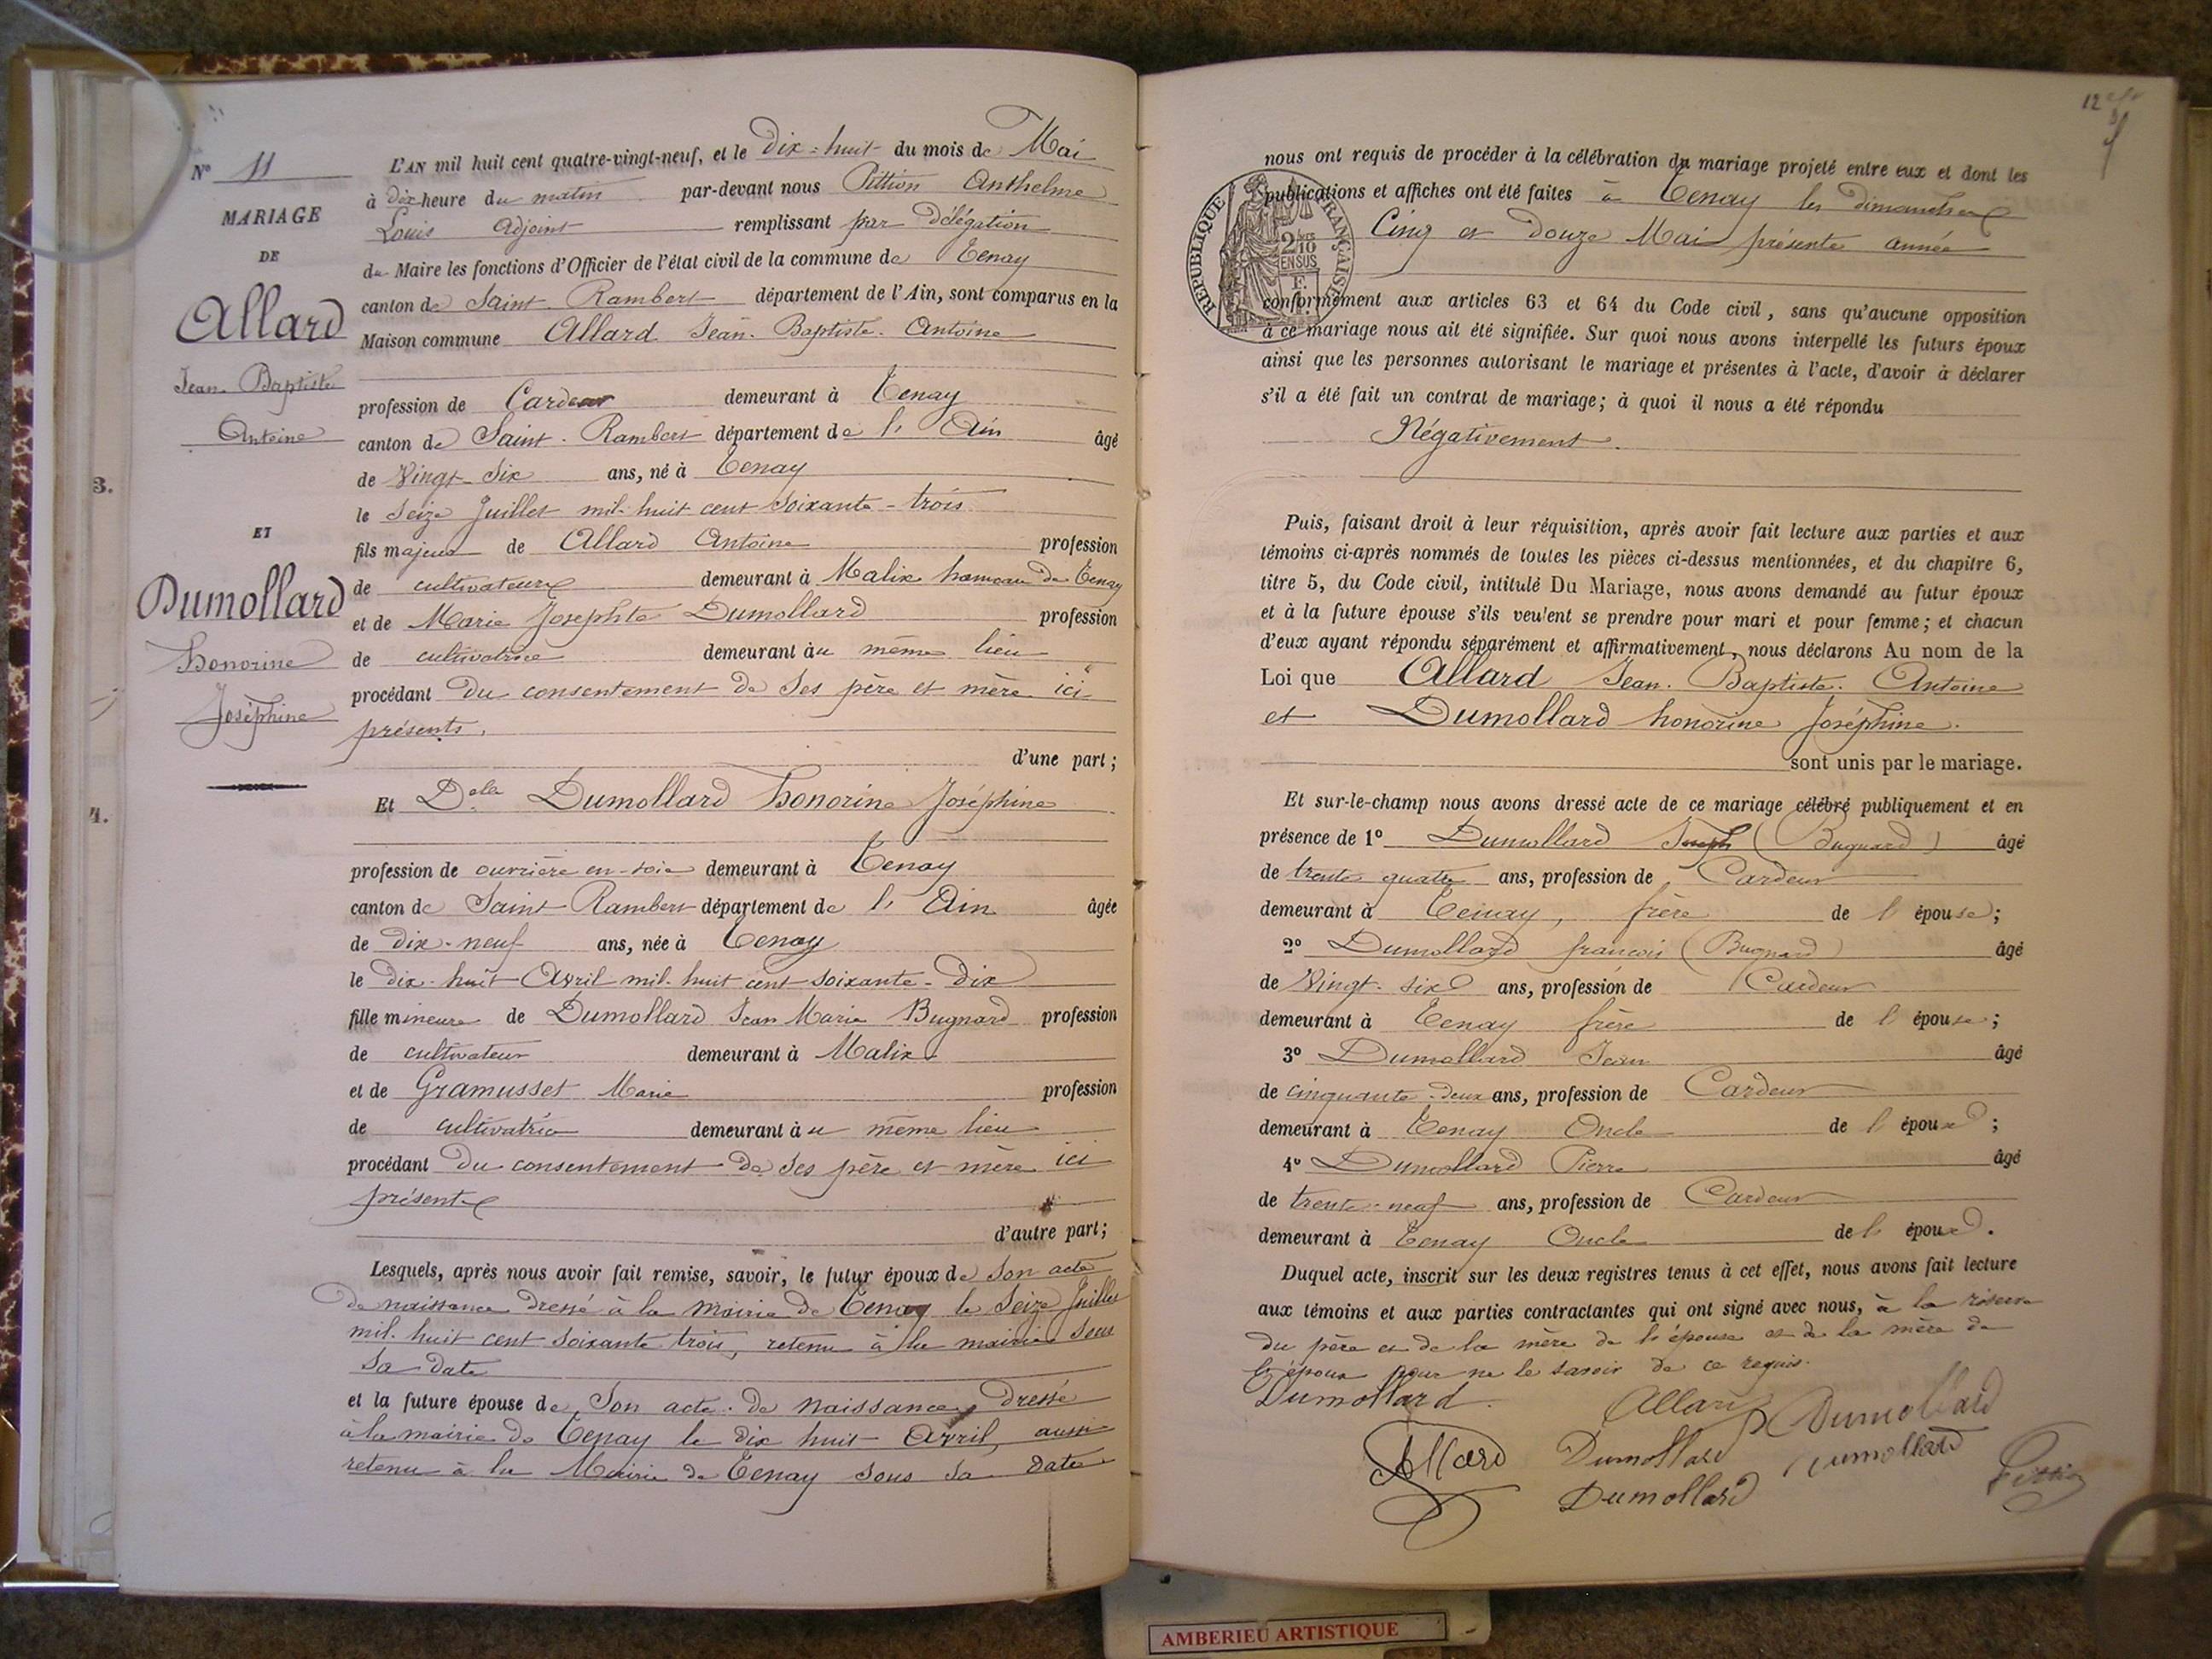 Nº 11
MARIAGE
DE
Allard
Jean-Baptiste
Antoine
ET
Dumollard
honorine
Joséphine
3.
4.
L'AN mil huit cent quatre-vingt-neuf, et le Dix-huit du mois de Mai
à dix heure du matin par-devant nous Pittion Anthelme
Louis Adjoint remplissant par Délégation
du Maire les fonctions d'Officier de l'état civil de la commune de Tenay
canton de Saint-Rambert département de l'Ain, sont comparus en la
Maison commune Allard Jean-Baptiste-Antoine
profession de Cardeur demeurant à Tenay
canton de Saint-Rambert département de l'Ain âgé
de Vingt-Six ans, né à Tenay
le Seize Juillet mil-huit cent Soixante-trois
fils majeur de Allard Antoine profession
de cultivateur demeurant à Malix hameau de Tenay
et de Marie Josephte Dumollard profession
de cultivatrice demeurant au même lieu
procédant Du consentement de Ses père et mère ici
présents.
d'une part;
Et Delle Dumollard honorine Joséphine
profession de ouvrière en-soie demeurant à Tenay
canton de Saint-Rambert département de l'Ain âgée
de dix-neuf ans, née à Tenay
le dix-huit Avril mil-huit cent soixante-Dix
fille mineure de Dumollard Jean Marie Bugnard profession
de cultivateur demeurant à Malix
et de Gramusset Marie profession
de cultivatrice demeurant au même lieu
procédant Du consentement de Ses père et mère ici
présents
d'autre part;
Lesquels, après nous avoir fait remise, savoir, le futur époux de Son acte
de naissance dressé à la mairie de Tenay le Seize Juillet
mil-huit cent soixante trois, retenu à la mairie sous
Sa date
et la future épouse de Son acte de naissance Dressé
à la mairie de Tenay le dix huit Avril, aussi
retenu à la Mairie de Tenay sous sa date
12
nous ont requis de procéder à la célébration du mariage projeté entre eux et dont les
publications et affiches ont été faites à Tenay les dimanches
Cinq et Douze Mai présente année
RÉPUBLIQUE FRANÇAISE
2/10 EN SUS
conformément aux articles 63 et 64 du Code civil, sans qu'aucune opposition
à ce mariage nous ait été signifiée. Sur quoi nous avons interpellé les futurs époux
ainsi que les personnes autorisant le mariage et présentes à l'acte, d'avoir à déclarer
s'il a été fait un contrat de mariage; à quoi il nous a été répondu
Négativement.
Puis, faisant droit à leur réquisition, après avoir fait lecture aux parties et aux
témoins ci-après nommés de toutes les pièces ci-dessus mentionnées, et du chapitre 6,
titre 5, du Code civil, intitulé Du Mariage, nous avons demandé au futur époux
et à la future épouse s'ils veulent se prendre pour mari et pour femme; et chacun
d'eux ayant répondu séparément et affirmativement, nous déclarons Au nom de la
Loi que Allard Jean-Baptiste-Antoine
et Dumollard honorine Joséphine.
sont unis par le mariage.
Et sur-le-champ nous avons dressé acte de ce mariage célébré publiquement et en
présence de 1º Dumollard Joseph (Bugnard) âgé
de trente quatre ans, profession de Cardeur
demeurant à Tenay, frère de l'épouse;
2º Dumollard françois (Bugnard) âgé
de Vingt-six ans, profession de Cardeur
demeurant à Tenay frère de l'épouse;
3º Dumollard Jean âgé
de cinquante-deux ans, profession de Cardeur
demeurant à Tenay Oncle de l'époux;
4º Dumollard Pierre âgé
de trente-neuf ans, profession de Cardeur
demeurant à Tenay Oncle de l'époux.
Duquel acte, inscrit sur les deux registres tenus à cet effet, nous avons fait lecture
aux témoins et aux parties contractantes qui ont signé avec nous, à la réserve
du père et de la mère de l'épouse et de la mère de
l'époux pour ne le savoir de ce requis.
Dumollard. Allard Dumollard
Allard Dumollard Dumollard
Dumollard Pittion
AMBERIEU ARTISTIQUE